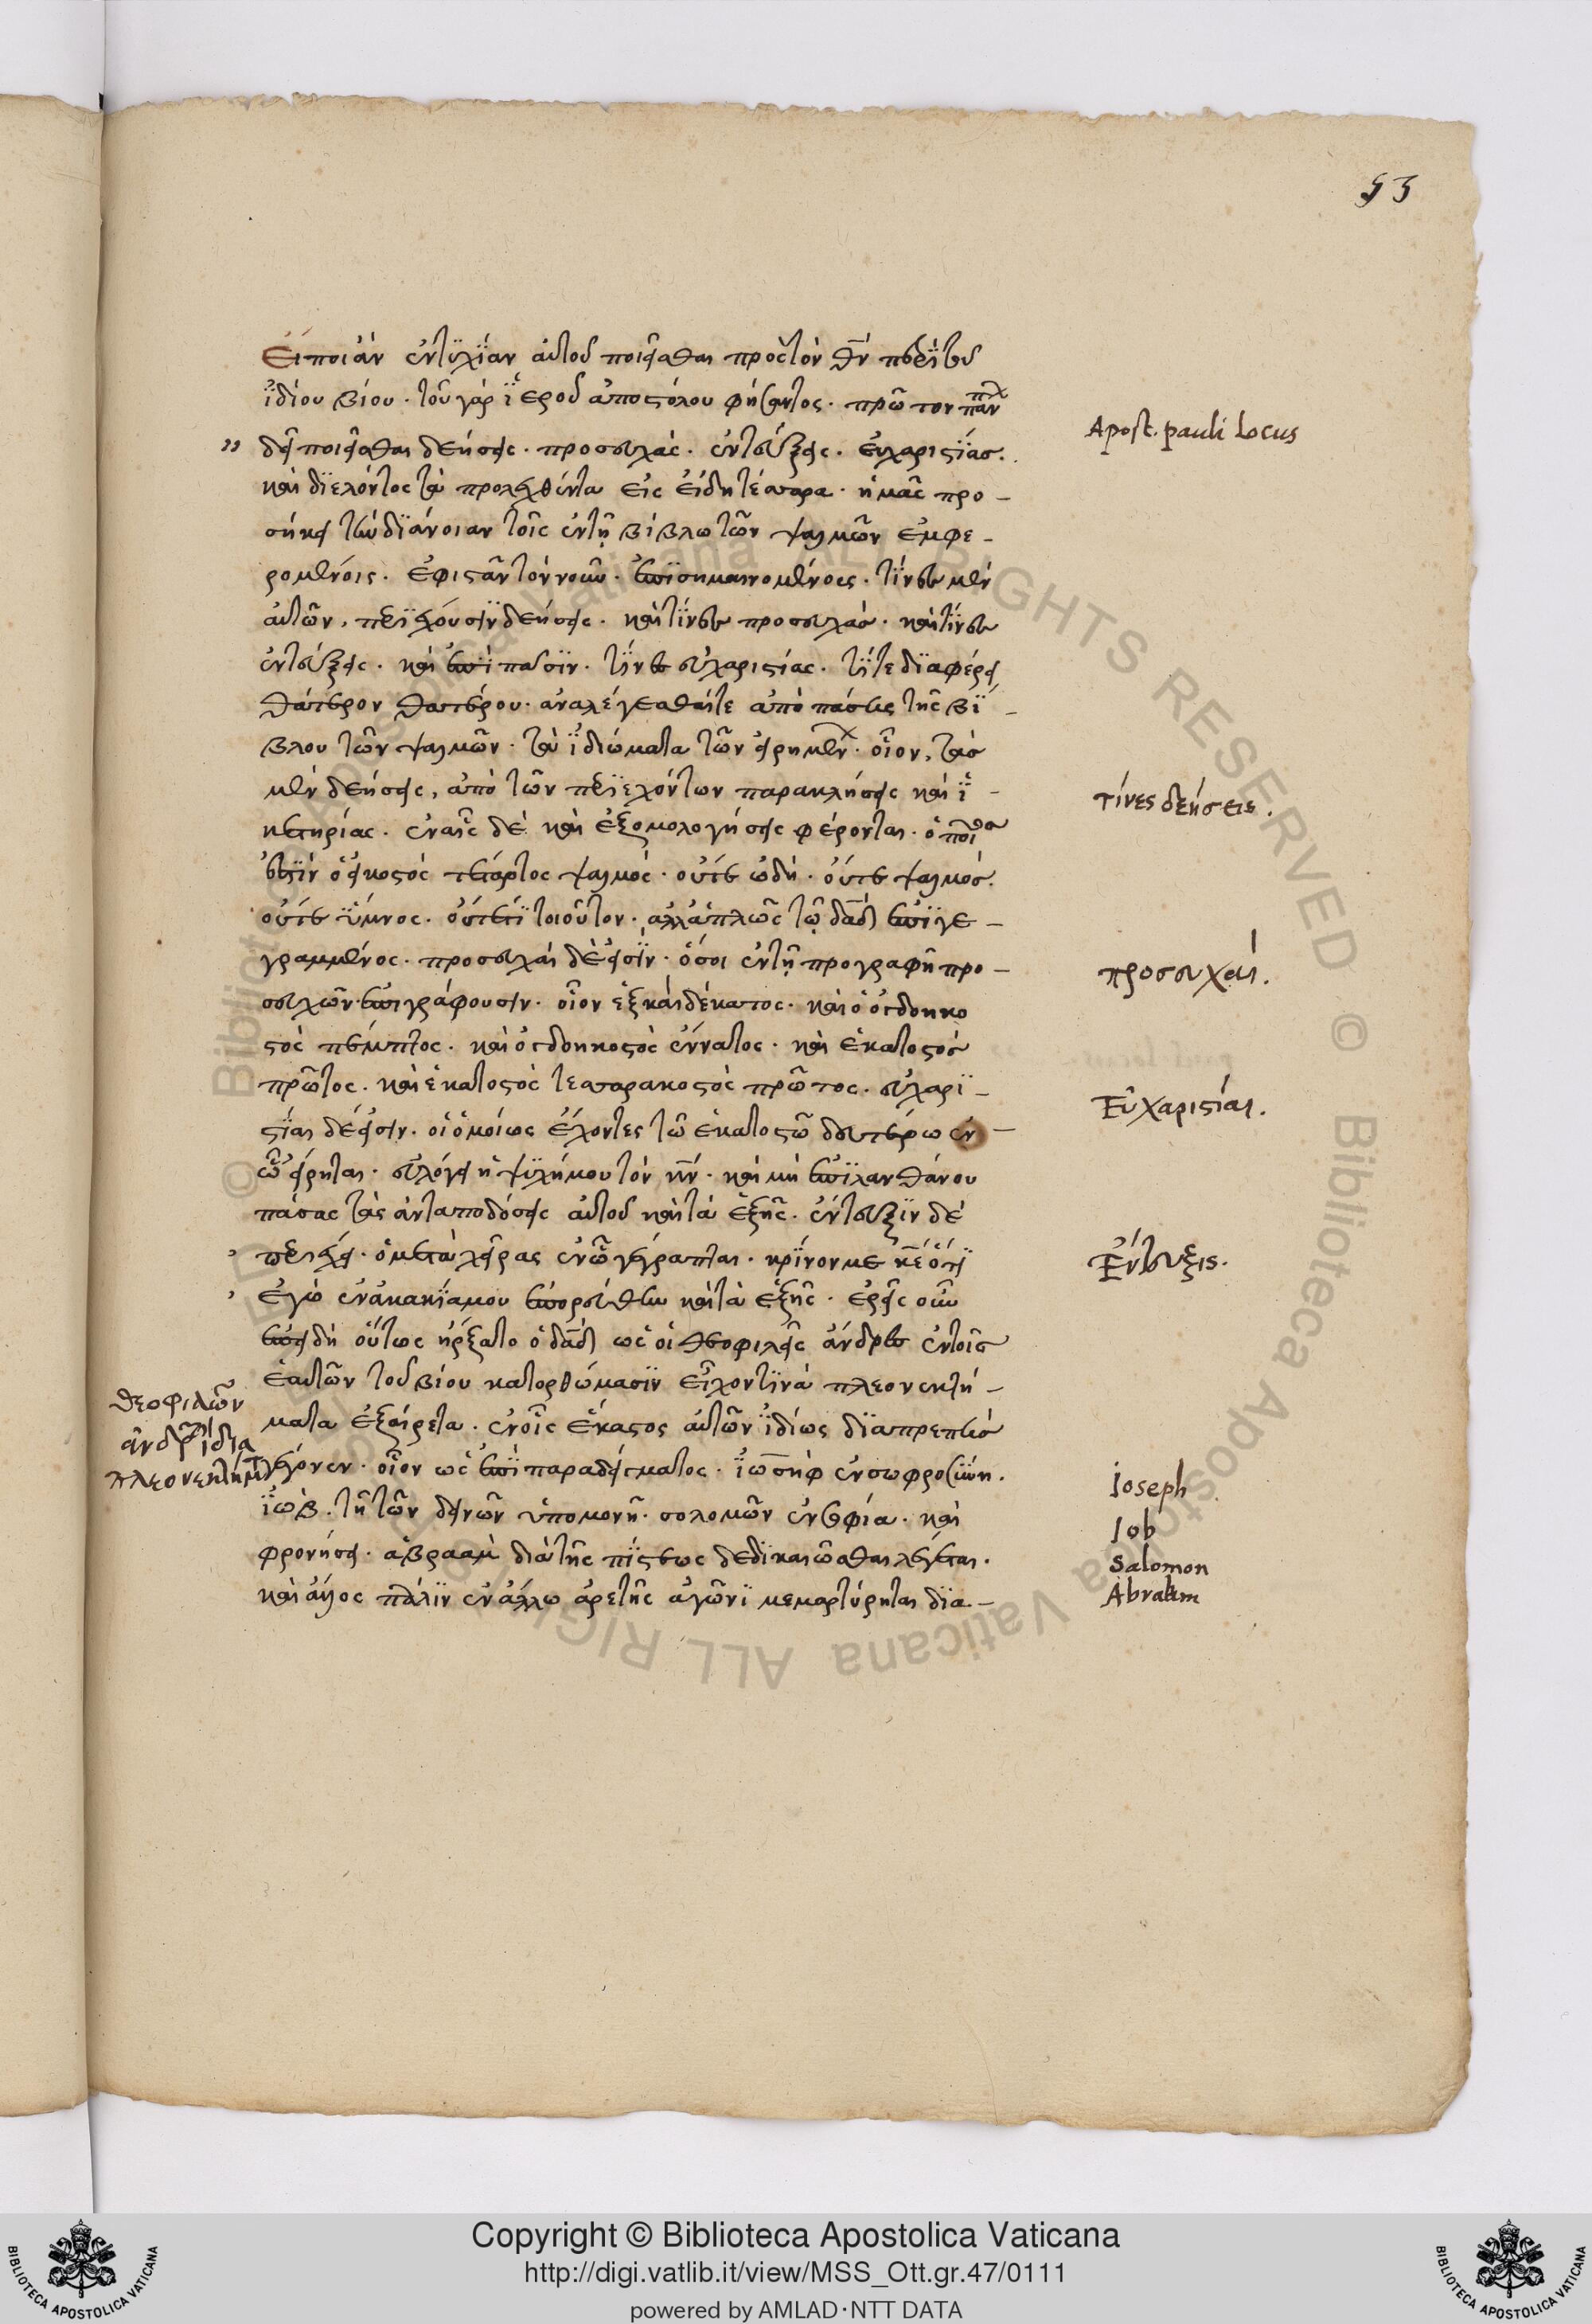 53
Εἰποιὰν ἐντϋχΐαν αὐτοῦ ποιεῖσθαι πρὸς τὸν θν περὶ τοῦ
ἰδίου βίου. τοῦ γὰρ ἱεροῦ ἀποστόλου φήσαντος. πρῶτον παν
δεῖ ποιεῖσθαι δεήσεις. προσευχάς. ἐντεύξεις. εὐχαριστίας.
καὶ διελόντος τὰ προλεχθέντα εἰς εἴδη τέσσαρα. ἡμᾶς προ-
σήκει τὴν διάνοιαν τοῖς ἐν τῇ βίβλω τῶν ψαλμῶν ἐμφε-
ρομένοις. ἐφιστᾶν τὸν νοῦν. ἐπισημαινομένοις. τίνες μὲν
αὐτῶν, περιέχουσιν δεήσεις. καὶ τίνες προσευχάς. καὶ τίνες
ἐντεύξεις. καὶ ἐπὶ πᾶσιν. τίνες εὐχαριστίας. τί τε διαφέρει
θάτερον θατέρου. ἀναλέγεσθαί τε ἀπὸ πάσης τῆς βί-
βλου τῶν ψαλμῶν. τὰ ἰδιώματα τῶν εἰρημέν. οἷον, τὰς
μὲν δεήσεις, ἀπὸ τῶν περιεχόντων παρακλήσεις καὶ ἱ-
κετηρίας. ἐν αἷς δὲ καὶ ἐξομολογήσεις φέρονται. ὁποῖος
ἐστὶν ὁ εἰκοστὸς τέταρτος ψαλμός. οὔτε ὠδὴ. οὔτε ψαλμός.
οὔτε ὕμνος. οὔτε τι τοιοῦτον. ἀλλ' ἁπλῶς τῷ δαδ ἐπιγε-
γραμμένος. προσευχαὶ δέ εἰσϊν. ὅσοι ἐν τῇ προγραφῇ προ-
σευχῶν ἐπιγράφουσιν. οἷον ἑξκαιδέκατος. καὶ ὁ ὀγδοηκο
στὸς πέμπτος. καὶ ὀγδοηκοστὸς ἔννατος. καὶ ἑκατοστὸς
πρῶτος. καὶ ἑκατοστὸς τεσσαρακοστὸς πρῶτος. εὐχαρι-
στίαι δέ εἰσιν. οἱ ὁμοίως ἔχοντες τῶ ἑκατοστῶ δευτέρω ἐν-
ᾧ εἴρηται. εὐλόγει ἡ ψϋχή μου τὸν κν. καὶ μὴ ἐπιλανθάνου
πάσας τὰς ἀνταποδόσεις αὐτοῦ καὶ τὰ ἑξῆς. ἔντευξϊν δὲ
περιέχει. ὁ μετὰ χεῖρας ἐν ᾧ γέγραπται. κρῖνον με κε ὅτι
ἐγὼ ἐν ἀκακίᾳ μου ἐπορεύθην καὶ τὰ ἑξῆς. ἐρεῖς οὖν
ἐπειδὴ οὕτως ἤρξατο ὁ δαδ ὡς οἱ θεοφιλεῖς ἄνδρες ἐν τοῖς
ἑαυτῶν τοῦ βίου κατορθώμασϊν εἶχον τϊνὰ πλεονεκτή-
ματα ἐξαίρετα. ἐν οἷς ἕκαστος αὐτῶν ἰδίως δϊαπρεπὴς
γέγονεν. οἷον ὡς ἐπὶ παραδείγματος. ἰωσὴφ ἐν σωφροσύνη.
ἰὼβ. τῇ τῶν δεινῶν ὑπομονῇ. σολομῶν ἐν σοφία. καὶ
φρονήσει. ἀβραὰμ διὰ τῆς πίστεως δεδικαιῶσθαι λέγεται.
καὶ ἄλλος πάλϊν ἐν ἄλλω ἀρετῆς ἀγῶνι μεμαρτύρηται δϊα-
Apost. pauli Locus
τίνες δεήσεις.
προσευχαί.
Εὐχαριστίαι.
Ἔντευξις.
θεοφιλῶν
ἀνδρ ἴδια
πλεονεκτήματ
Joseph
Job
Salomon
Abraham
Copyright © Biblioteca Apostolica Vaticana
http://digi.vatlib.it/view/MSS_Ott.gr.47/0111
powered by AMLAD·NTT DATA
BIBLIOTECA APOSTOLICA VATICANA
BIBLIOTECA APOSTOLICA VATICANA